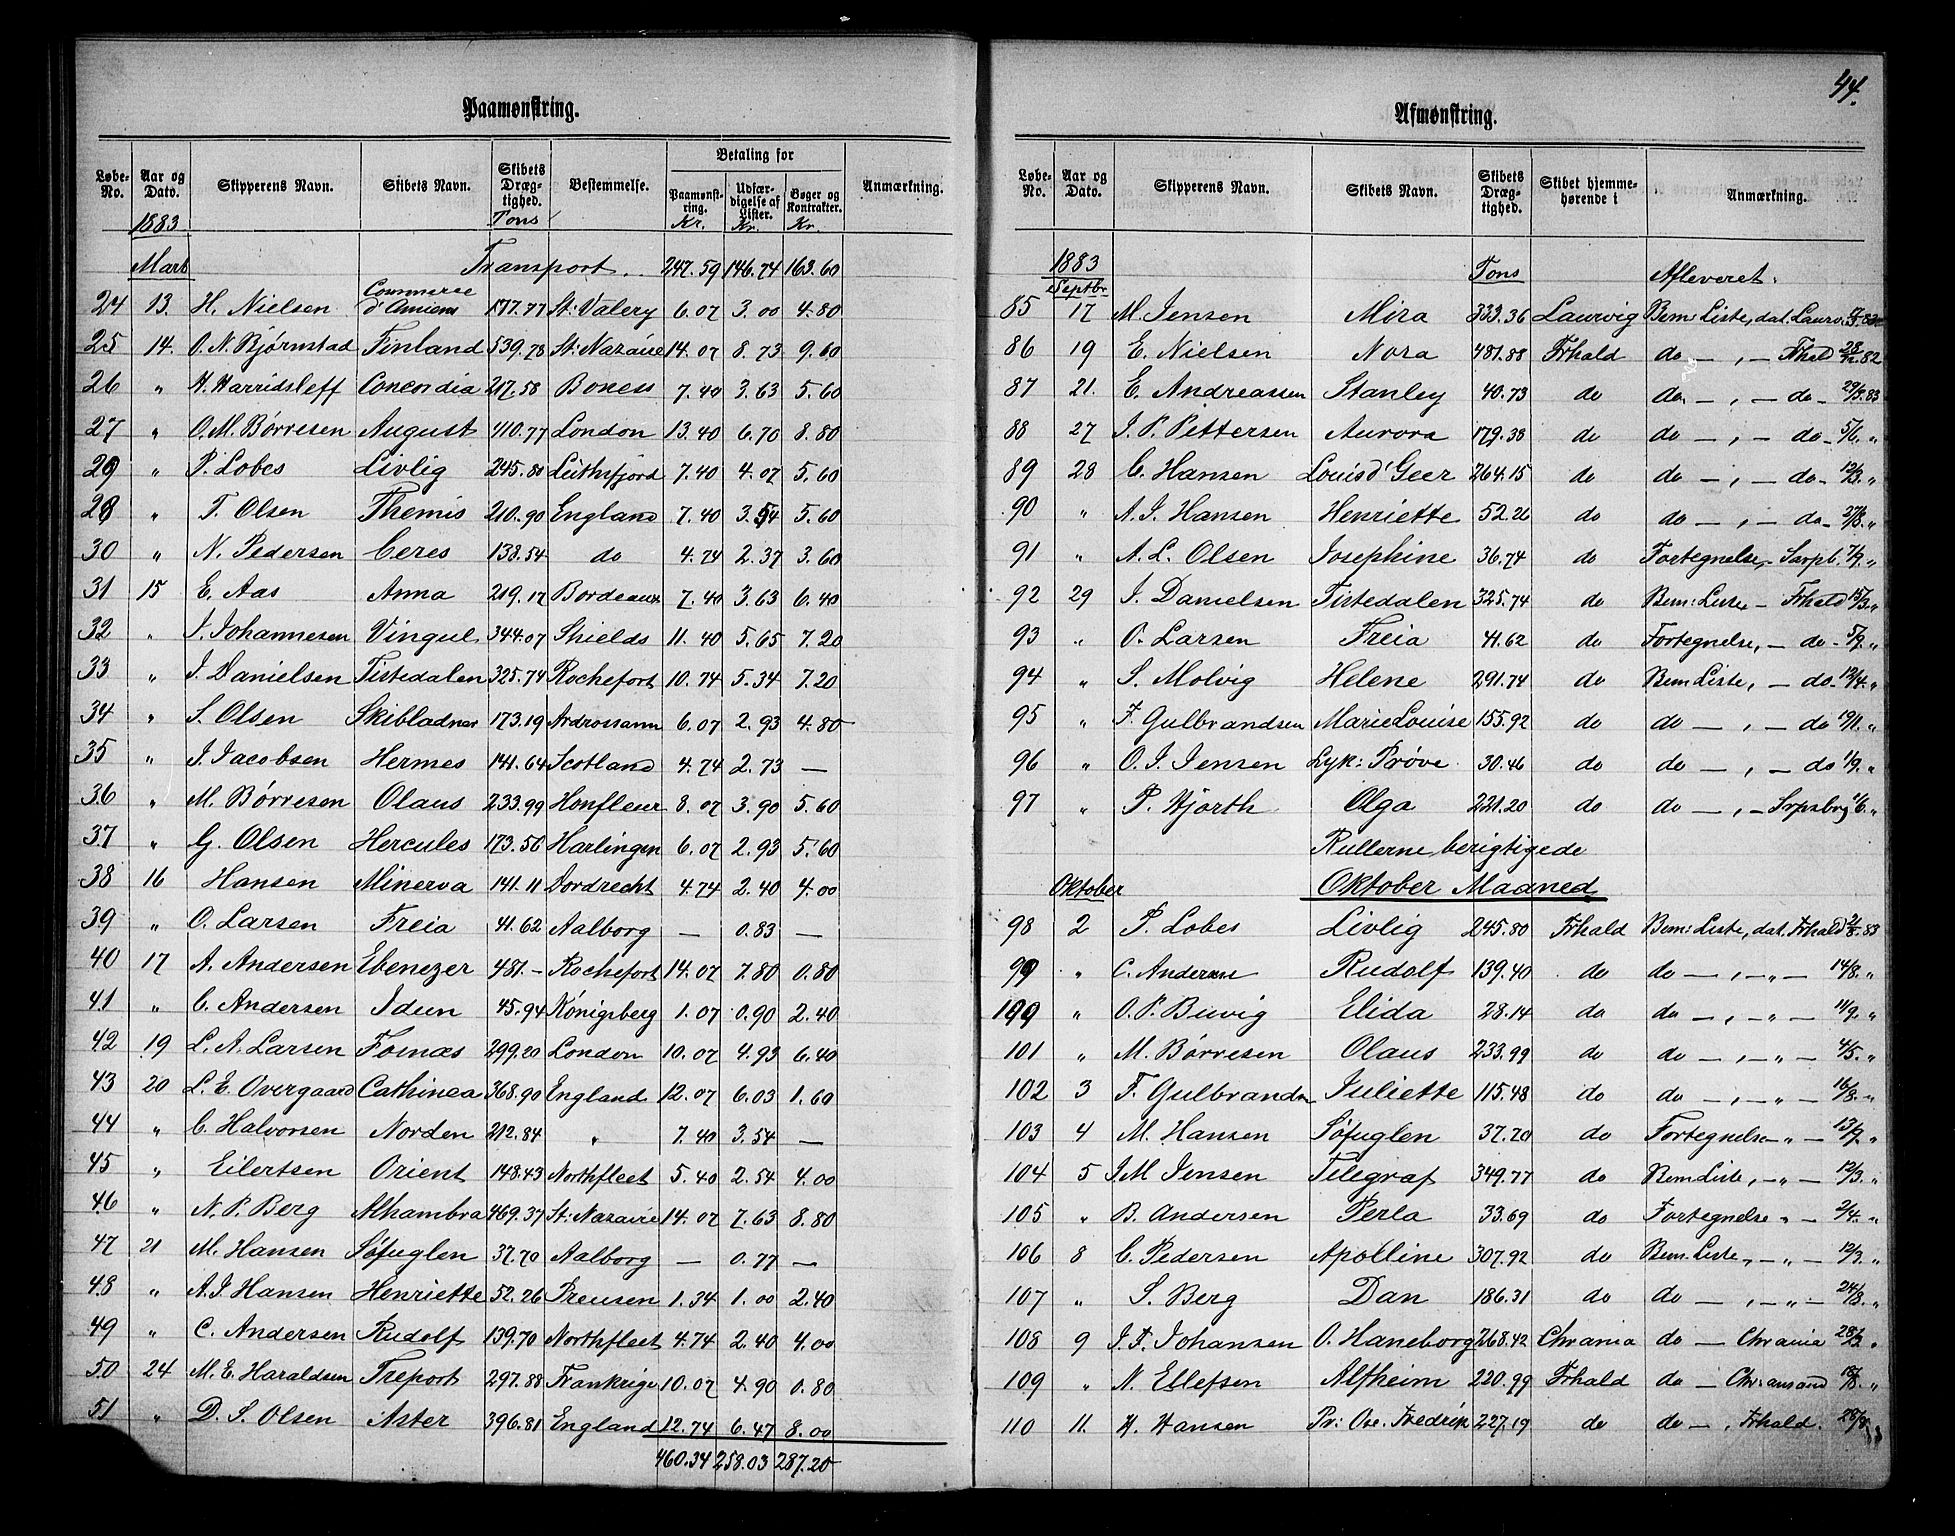 44.
Paamønstring.
Løbe-No. Aar og Dato. Skipperens Navn. Skibets Navn. Skibets Dræg-tighed. Bestemmelse. Betaling for Paamønst-ring. Udfær-digelse af Lister. Bøger og Kontrakter. Anmærkning.
1883 Tons Kr. Kr. Kr.
Marts Transport. 247.59 146.74 163.60
24 13. H. Nielsen Commerce d'Amiens 177.77 St: Valery 6.07 3.00 4.80
25 14. O. N. Bjørnstad Finland 539.78 St: Nazaire 14.07 8.73 9.60
26 " H. Harridsleff Concordia 217.58 Boness 7.40 3.63 5.60
27 " O. M. Børresen August 410.77 London 13.40 6.70 8.80
29 " P. Lobes Livlig 245.80 Leithsfjord 7.40 4.07 5.60
28 " T. Olsen Themis 210.90 England 7.40 3.54 5.60
30 " N. Pedersen Ceres 138.54 do 4.74 2.37 3.60
31 15 E. Aas Anna 219.17 Bordeaux 7.40 3.63 6.40
32 " J. Johannesen Vingul 344.07 Shields 11.40 5.65 7.20
33 " J. Danielsen Tistedalen 325.74 Rochefort 10.74 5.34 7.20
34 " S. Olsen Skibladner 173.19 Ardrossann 6.07 2.93 4.80
35 " J. Jacobsen Hermes 141.64 Scotland 4.74 2.73 —
36 " M. Børresen Olaus 233.99 Honfleur 8.07 3.90 5.60
37 " G. Olsen Hercules 173.56 Harlingen 6.07 2.93 5.60
38 16 Hansen Minerva 141.11 Dordrecht 4.74 2.40 4.00
39 " O. Larsen Freia 41.62 Aalborg — 0.83 —
40 17 A. Andersen Ebenezer 481.— Rochefort 14.07 7.80 0.80
41 " C. Andersen Idun 45.94 Königsberg 1.07 0.90 2.40
42 19 L. A. Larsen Fornæs 299.20 London 10.07 4.93 6.40
43 20 L. E. Overgaard Cathinca 368.90 England 12.07 6.03 1.60
44 " C. Halvorsen Norden 212.84 " 7.40 3.54 —
45 " Eilertsen Orient 148.43 Northfleet 5.40 2.54 4.00
46 " N. P. Berg Alhambra 469.37 St: Nazaire 14.07 7.63 8.80
47 21 M. Hansen Søfuglen 37.70 Aalborg — 0.77 —
48 " A. J. Hansen Henriette 52.26 Preusen 1.34 1.00 2.40
49 " C. Andersen Rudolf 139.70 Northfleet 4.74 2.40 4.00
50 24 M. E. Haraldsen Treport 297.88 Frankrige 10.07 4.90 0.80
51 " D. S. Olsen Aster 396.81 England 12.74 6.47 8.00
460.34 258.03 287.20
Afmønstring.
Løbe-No. Aar og Dato. Skipperens Navn. Skibets Navn. Skibets Dræg-tighed. Skibet hjemme-hørende i Anmærkning.
1883 Tons Afleveret.
Septbr
85 17 M. Jensen Mira 333.36 Laurvig Bem: Liste, dat. Laurv.
86 19 E. Nielsen Nora 481.88 Frhald do — " — Fhald 28/12 82
87 21. E. Andreassen Stanley 40.73 do do. — " — do — 29/3 83
88 27 J. P. Pettersen Aurora 179.38 do do — " — do — 5/6. "
89 28 C. Hansen Louis d'Geer 264.15 do do — " — do — 12/3. "
90 " A. J. Hansen Henriette 52.26 do do — " — do — 27/8. "
91 " A. L. Olsen Josephine 36.74 do Fortegnelse, Sarpb. 7/9. "
92 29 J. Danielsen Tistedalen 325.74 do Bem: Liste — Frhald 15/3. "
93 " O. Larsen Freia 41.62 do Fortegnelse, — do — 5/9. "
94 " S. Molvig Helene 291.74 do Bem Liste, — do — 12/4. "
95 " F. Gulbrandsen Marie Louise 155.92 do do — " — do 19/11. "
96 " O. J. Jensen Lyk: Prøve 30.46 do do — " — do 1/9. "
97 " P. Hjorth Olga 221.20 do do — " — Srpsbrg 1/6. "
Rullerne berigtigede
Oktober Oktober Maaned
98 2 P. Lobes Livlig 245.80 Frhald Bem: Liste, dat. Frhald 2/8. 83
99 " C. Andersen Rudolf 139.40 do do — " — " — 14/8. "
100 " O. P. Buvig Elida 28.14 do do — " — " — 11/9. "
101 " M. Børresen Olaus 233.99 do do — " — " — 4/5. "
102 3 F. Gulbrandsn Juliette 115.48 do do — " — " — 16/8. "
103 4 M. Hansen Søfuglen 37.70 do Fortegnelse — " — 13/9. "
104 5 J. M. Jensen Telegraf 349.77 do Bem Liste, — " — 12/3. "
105 " B. Andersen Perla 33.69 do Fortegnelse " — 2/4. "
106 8 C. Pedersen Apolline 307.92 do Bem. Liste, — " — 12/3. "
107 " S. Berg Dan 186.31 do do — " — " — 24/8. "
108 9 J. F. Johansen O. Haneborg 268.42 Chrania do — Chrania "
109 " N. Ellefsen Alfheim 220.99 Frhald do — Chr:ansand 18/8. "
110 11. H. Hansen Pr: Osc. Fredrik 227.19 do do — " Frhald.